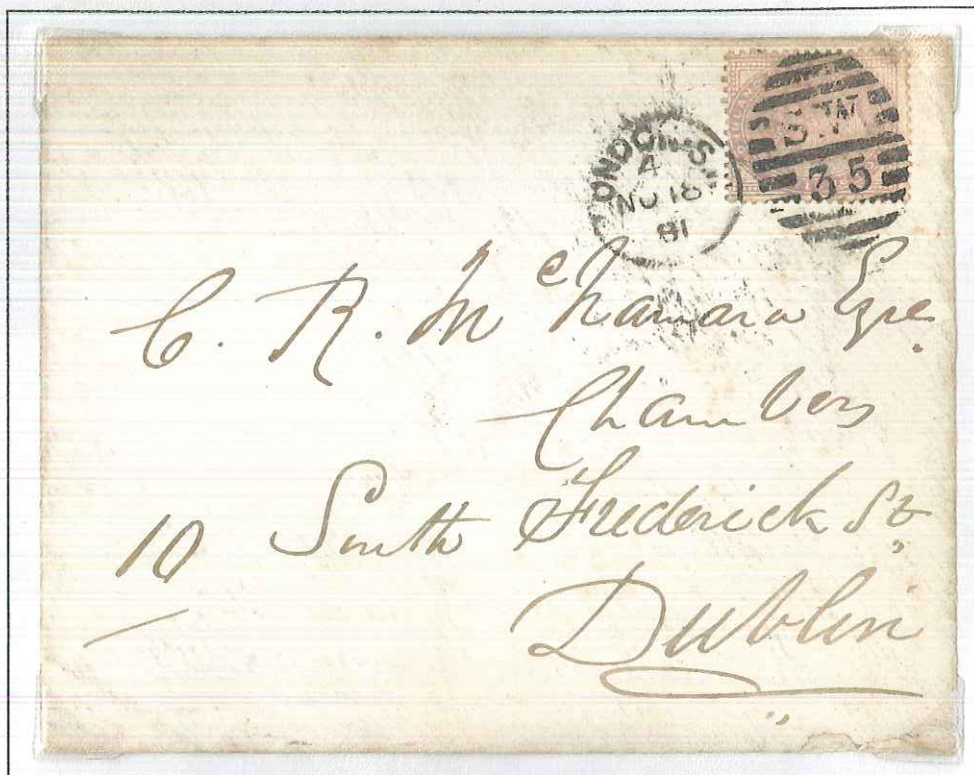 LONDON·S.W
A
NO 18
81
S.W
35
C. R. McNamara Esqre.
Chambers
10 South Frederick St.
Dublin